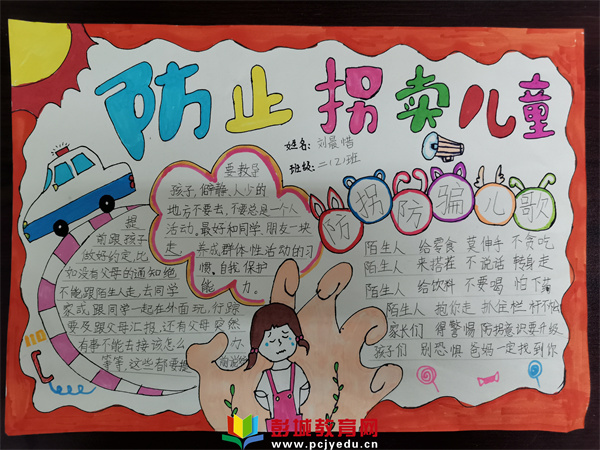 防止拐卖儿童
姓名:刘晨惜
班级:二(2)班
要教导
孩子,僻静、人少的
地方不要去,不要总是一个人
活动,最好和同学、朋友一块
走,养成群体性活动的习
惯,自我保护
能力。
提
前跟孩子
做好约定,比
如没有父母的通知绝
不能跟陌生人走,去同学
家或跟同学一起在外面玩,行踪
要及跟父母汇报,还有父母突然
有事不能去接该怎么办
等等,这些都要提前说好
110
防拐防骗儿歌
陌生人 给零食 莫伸手 不贪吃
陌生人 来搭茬 不说话 转身走
陌生人 给饮料 不要喝 怕下药
陌生人 抱你走 扒住栏杆不松
家长们 得警惕 防拐意识要升级
孩子们 别恐惧 爸妈一定找到你
彭城教育网
www.pcjyedu.cn